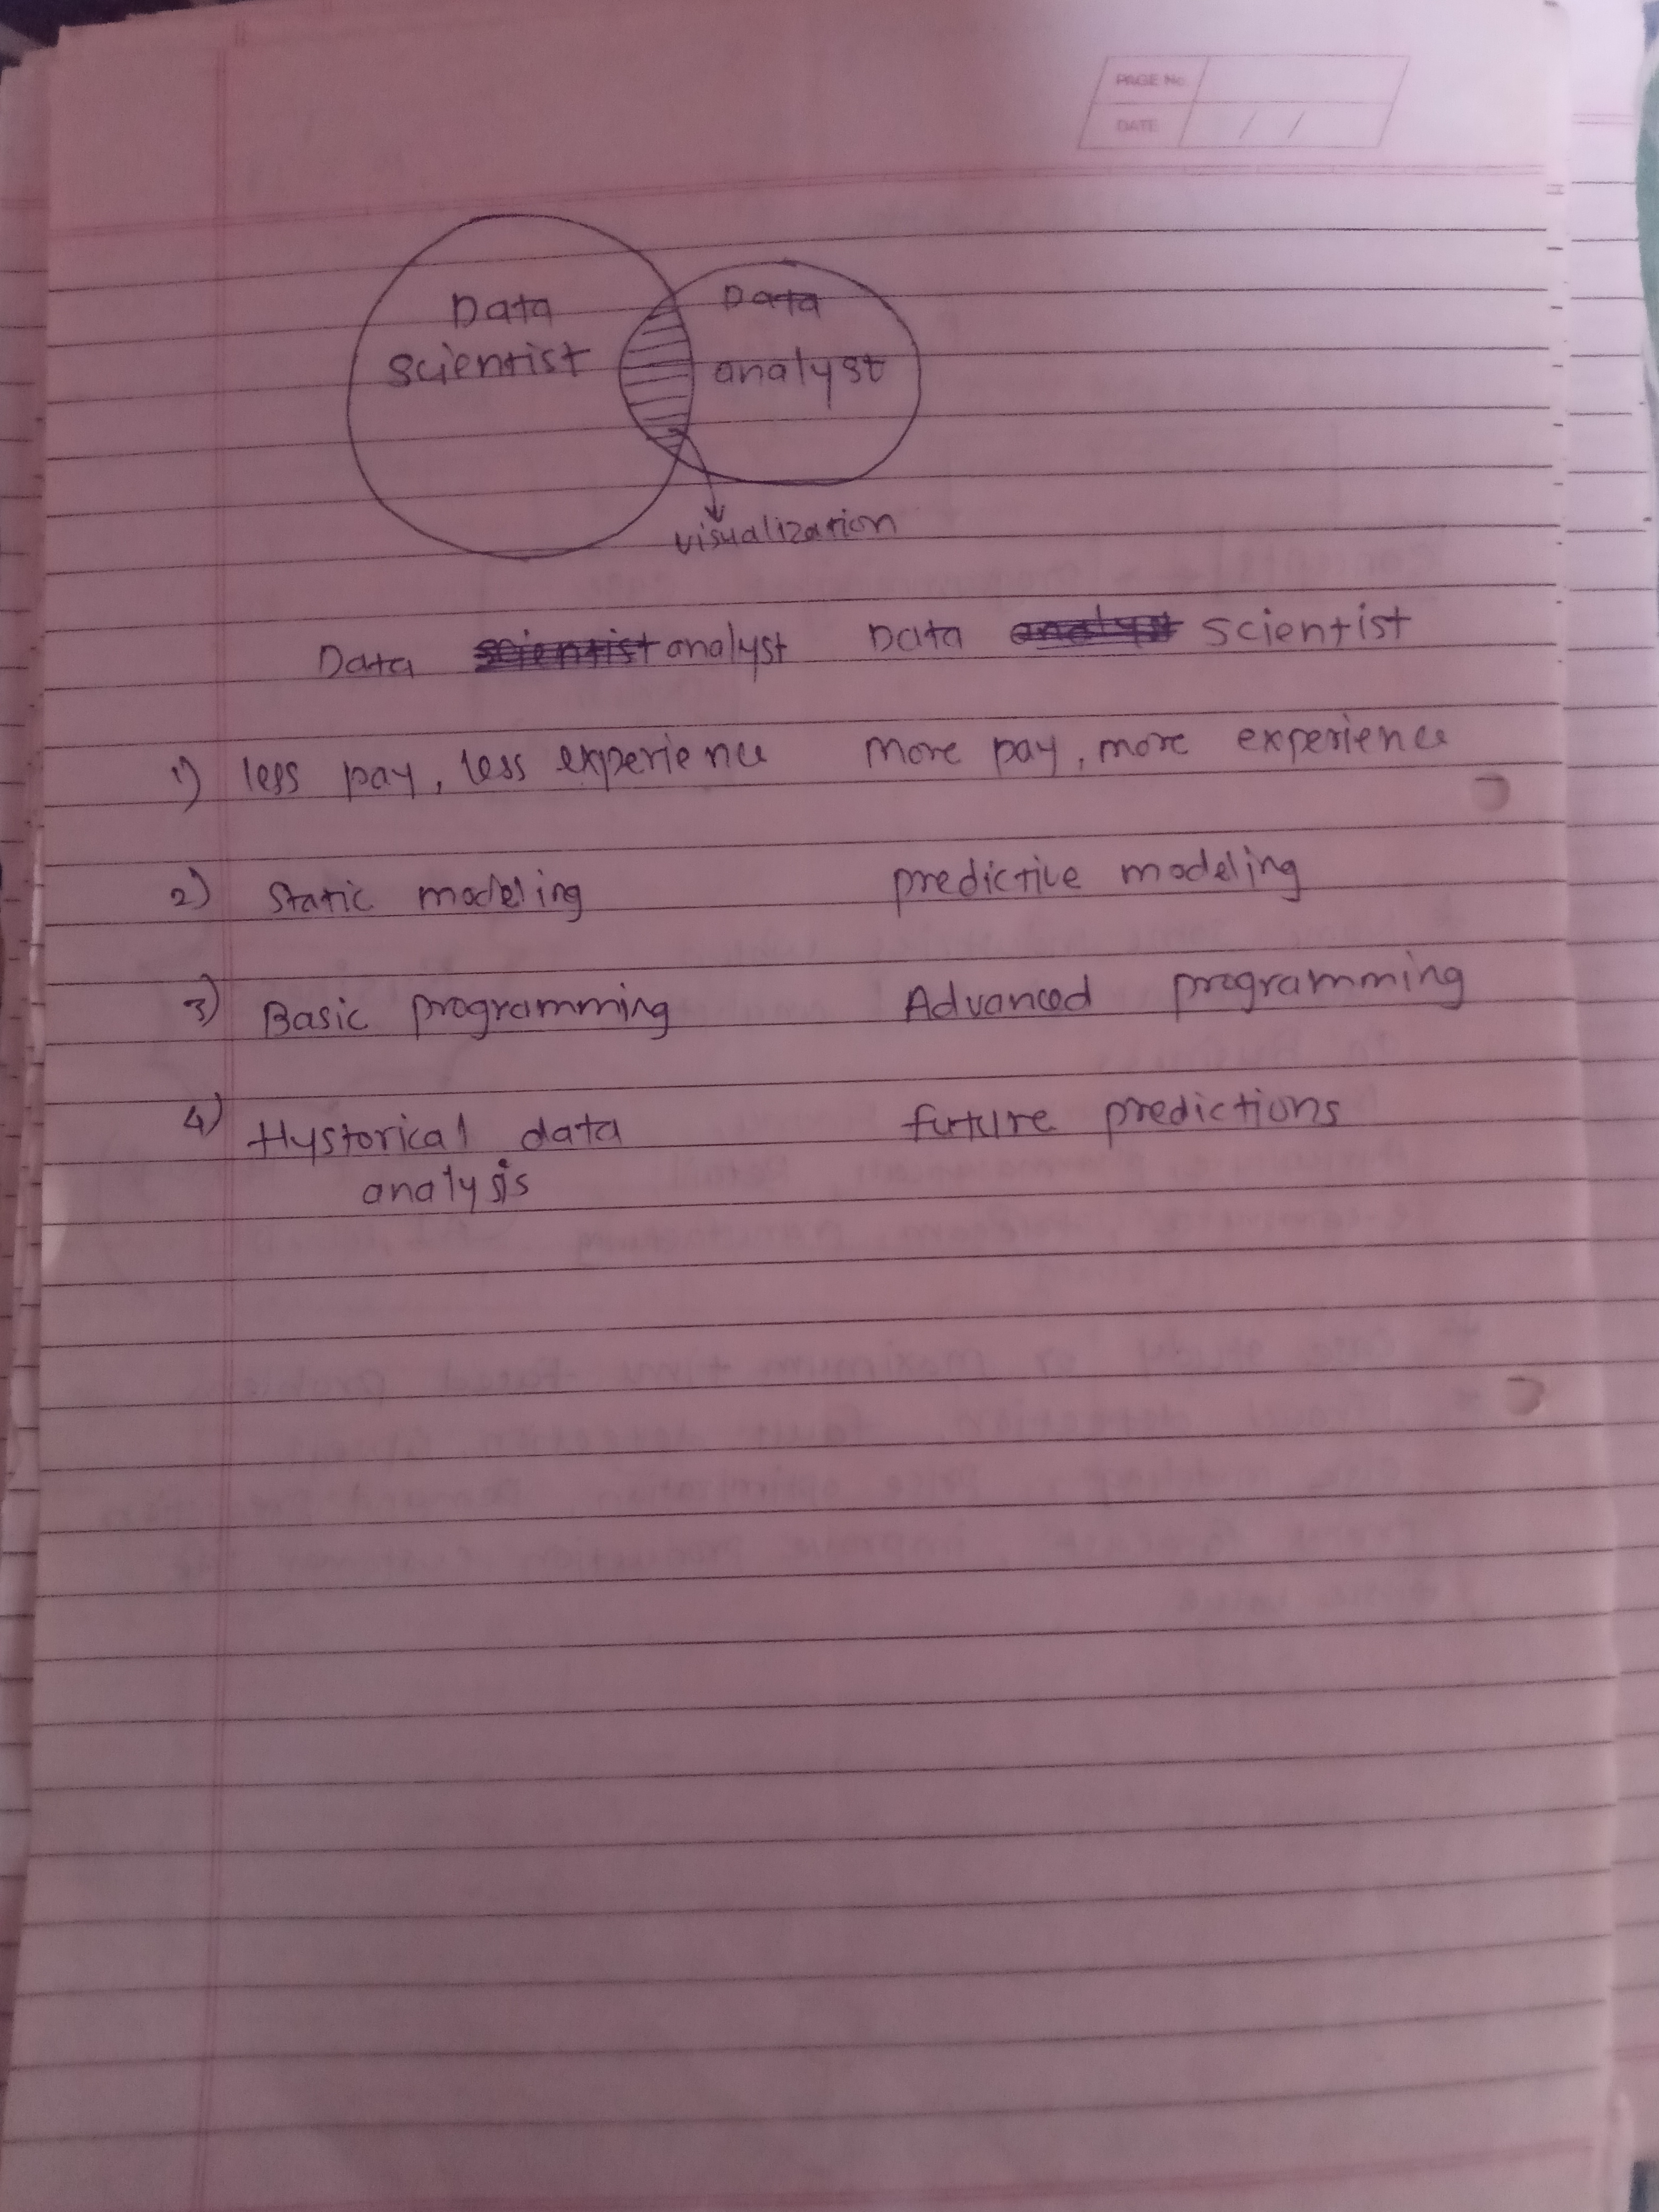 PAGE No.
DATE / /
Data
scientist
Data
analyst
visualization
Data analyst Data scientist
1) less pay, less experience more pay, more experience
2) Static modeling predictive modeling
3) Basic programming Advanced programming
4) Hystorical data future predictions
analysis